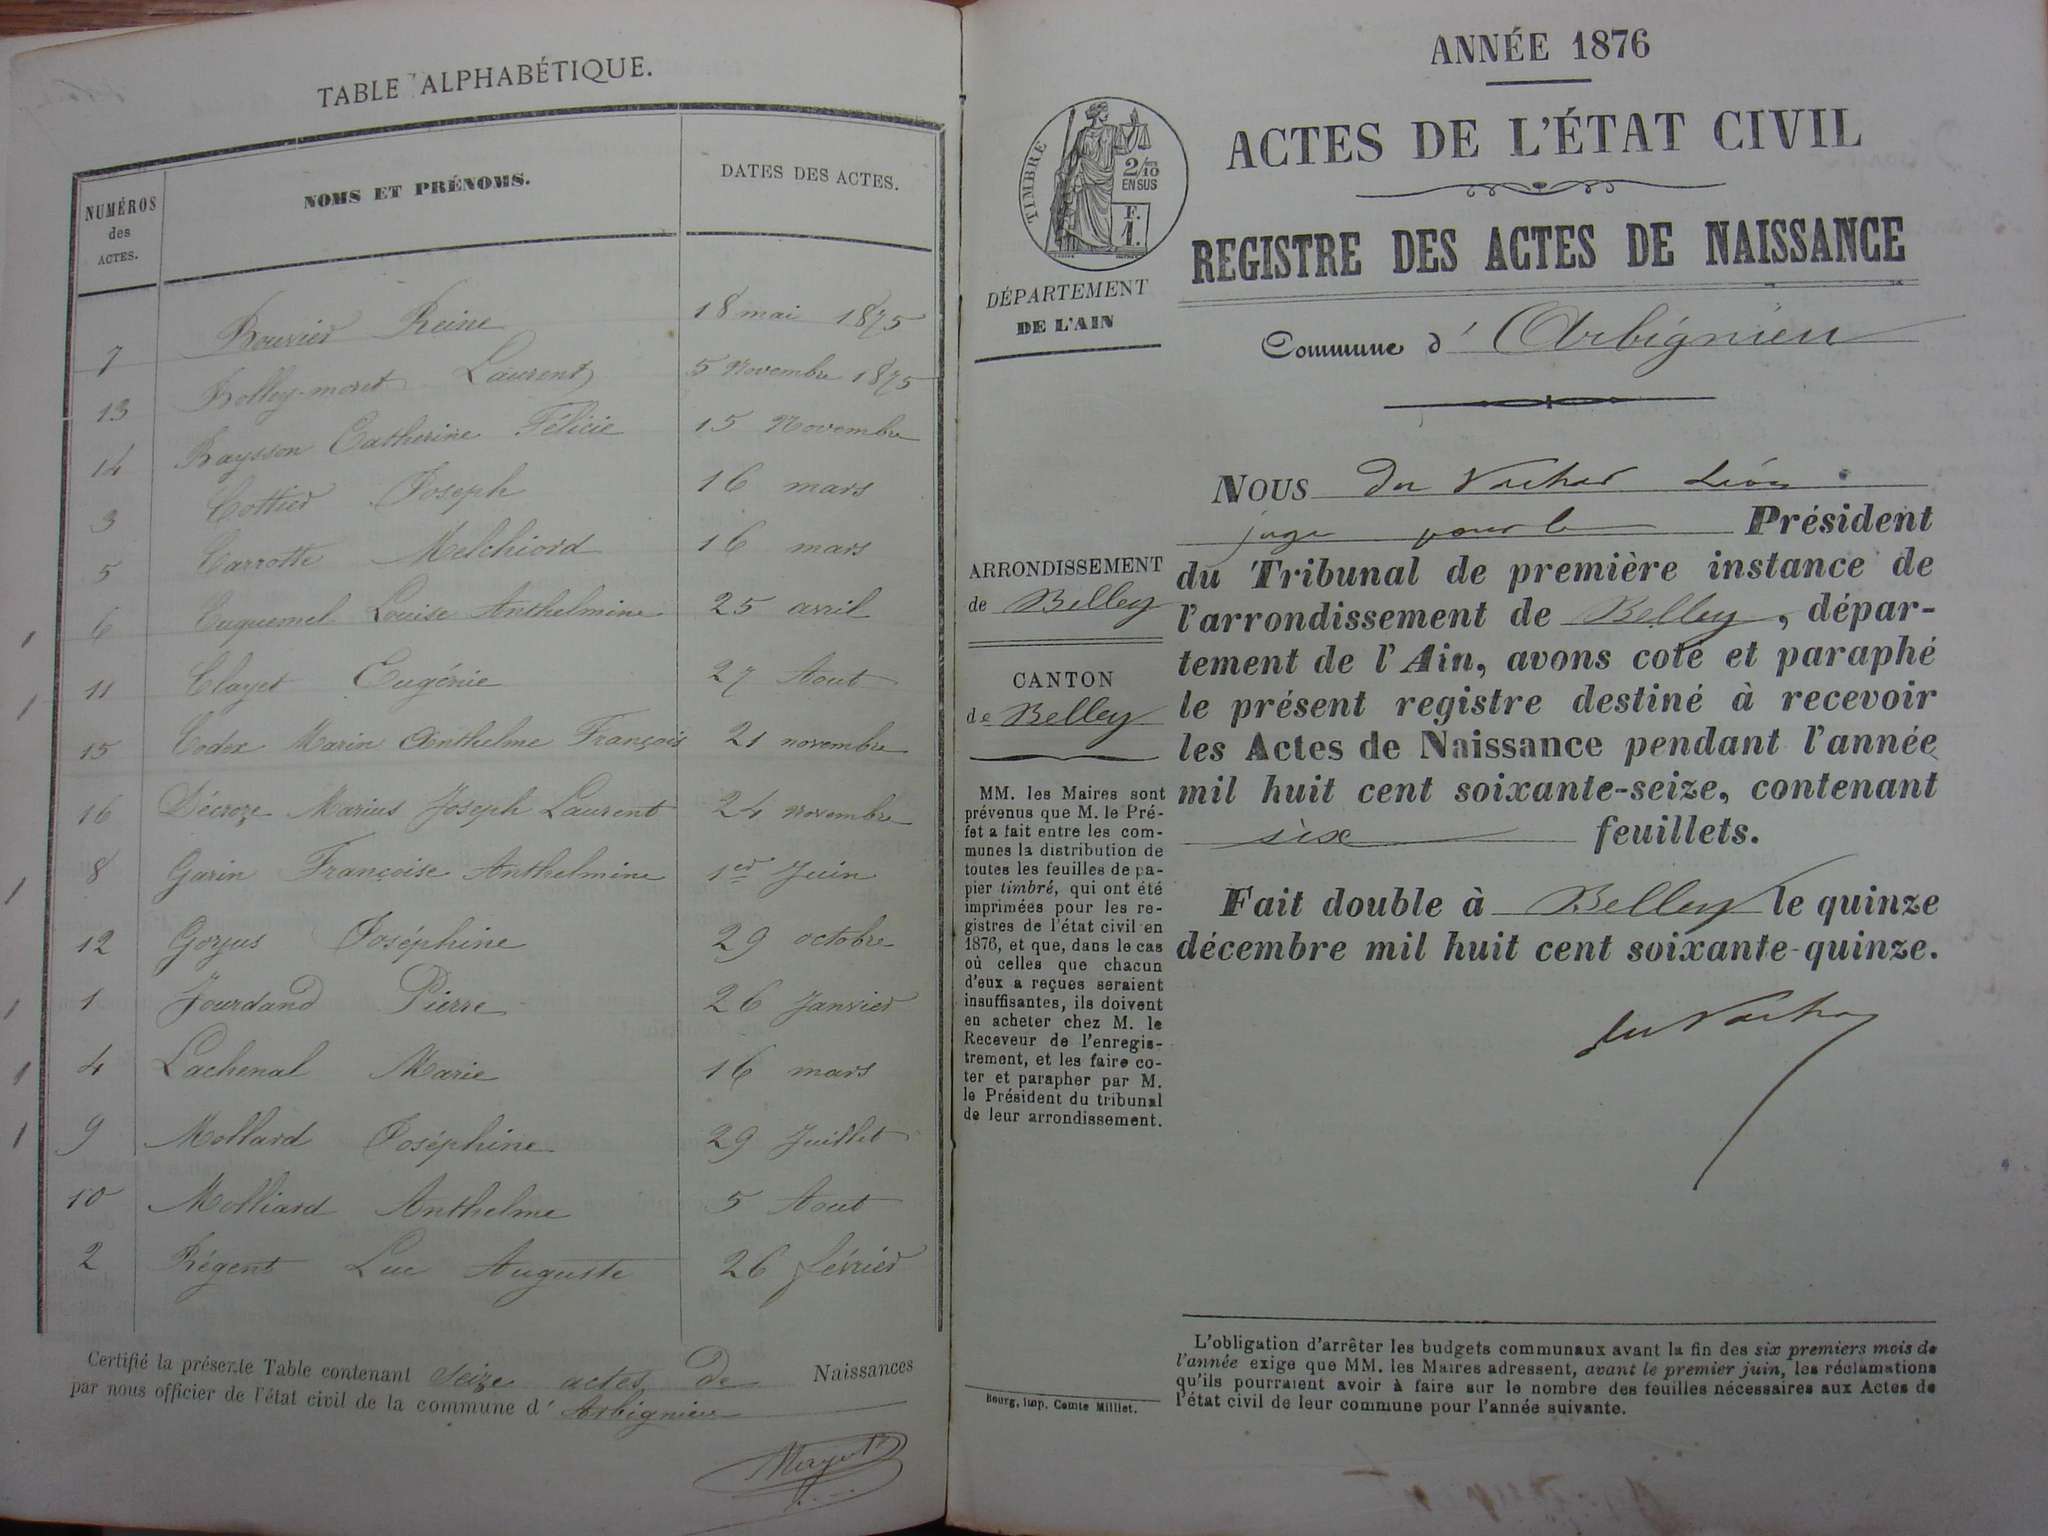 TABLE ALPHABÉTIQUE.
NUMÉROS des ACTES. NOMS ET PRÉNOMS. DATES DES ACTES.
7 Bouvier Reine 18 mai 1875
13 Bolley-moret Laurent 5 Novembre 1875
14 Baysson Catherine Félicie 15 Novembre
3 Cottier Joseph 16 mars
5 Carrotte Melchiord 16 mars
6 Cuquemel Louise Anthelmine 25 avril
11 Clayet Eugénie 27 Aout
15 Codex Marin Anthelme François 21 novembre
16 Décroze Marius Joseph Laurent 24 novembre
8 Garin Françoise Anthelmine 1er Juin
12 Gojus Joséphine 29 octobre
1 Jourdand Pierre 26 Janvier
4 Lachenal Marie 16 mars
9 Mollard Joséphine 29 Juillet
10 Molliard Anthelme 5 Aout
2 Régent Luc Auguste 26 février
Certifié la présente Table contenant seize actes de Naissances
par nous officier de l'état civil de la commune d' Arbignieu
ANNÉE 1876
ACTES DE L'ÉTAT CIVIL
REGISTRE DES ACTES DE NAISSANCE
TIMBRE
2/10
EN SUS
F.
1.
DÉPARTEMENT
DE L'AIN
Commune d' Arbignieu
ARRONDISSEMENT
de Belley
CANTON
de Belley
MM. les Maires sont
prévenus que M. le Pré-
fet a fait entre les com-
munes la distribution de
toutes les feuilles de pa-
pier timbré, qui ont été
imprimées pour les re-
gistres de l'état civil en
1876, et que, dans le cas
où celles que chacun
d'eux a reçues seraient
insuffisantes, ils doivent
en acheter chez M. le
Receveur de l'enregis-
trement, et les faire co-
ter et parapher par M.
le Président du tribunal
de leur arrondissement.
Bourg, imp. Comte Milliet.
NOUS du Vachat Léon
juge pour le Président
du Tribunal de première instance de
l'arrondissement de Belley, dépar-
tement de l'Ain, avons coté et paraphé
le présent registre destiné à recevoir
les Actes de Naissance pendant l'année
mil huit cent soixante-seize, contenant
six feuillets.
Fait double à Belley le quinze
décembre mil huit cent soixante-quinze.
du Vachat
L'obligation d'arrêter les budgets communaux avant la fin des six premiers mois de
l'année exige que MM. les Maires adressent, avant le premier juin, les réclamations
qu'ils pourraient avoir à faire sur le nombre des feuilles nécessaires aux Actes de
l'état civil de leur commune pour l'année suivante.